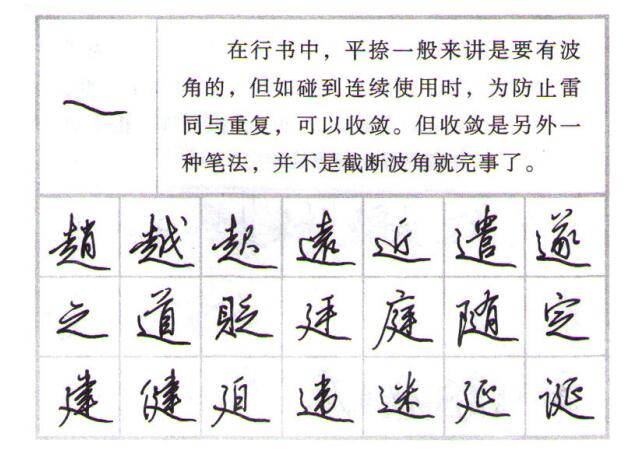 在行书中，平捺一般来讲是要有波
角的，但如碰到连续使用时，为防止雷
同与重复，可以收敛。但收敛是另外一
种笔法，并不是截断波角就完事了。
趙 越 起 遠 近 遣 遂
之 道 貶 廷 庭 随 定
建 健 迪 违 迷 延 诞